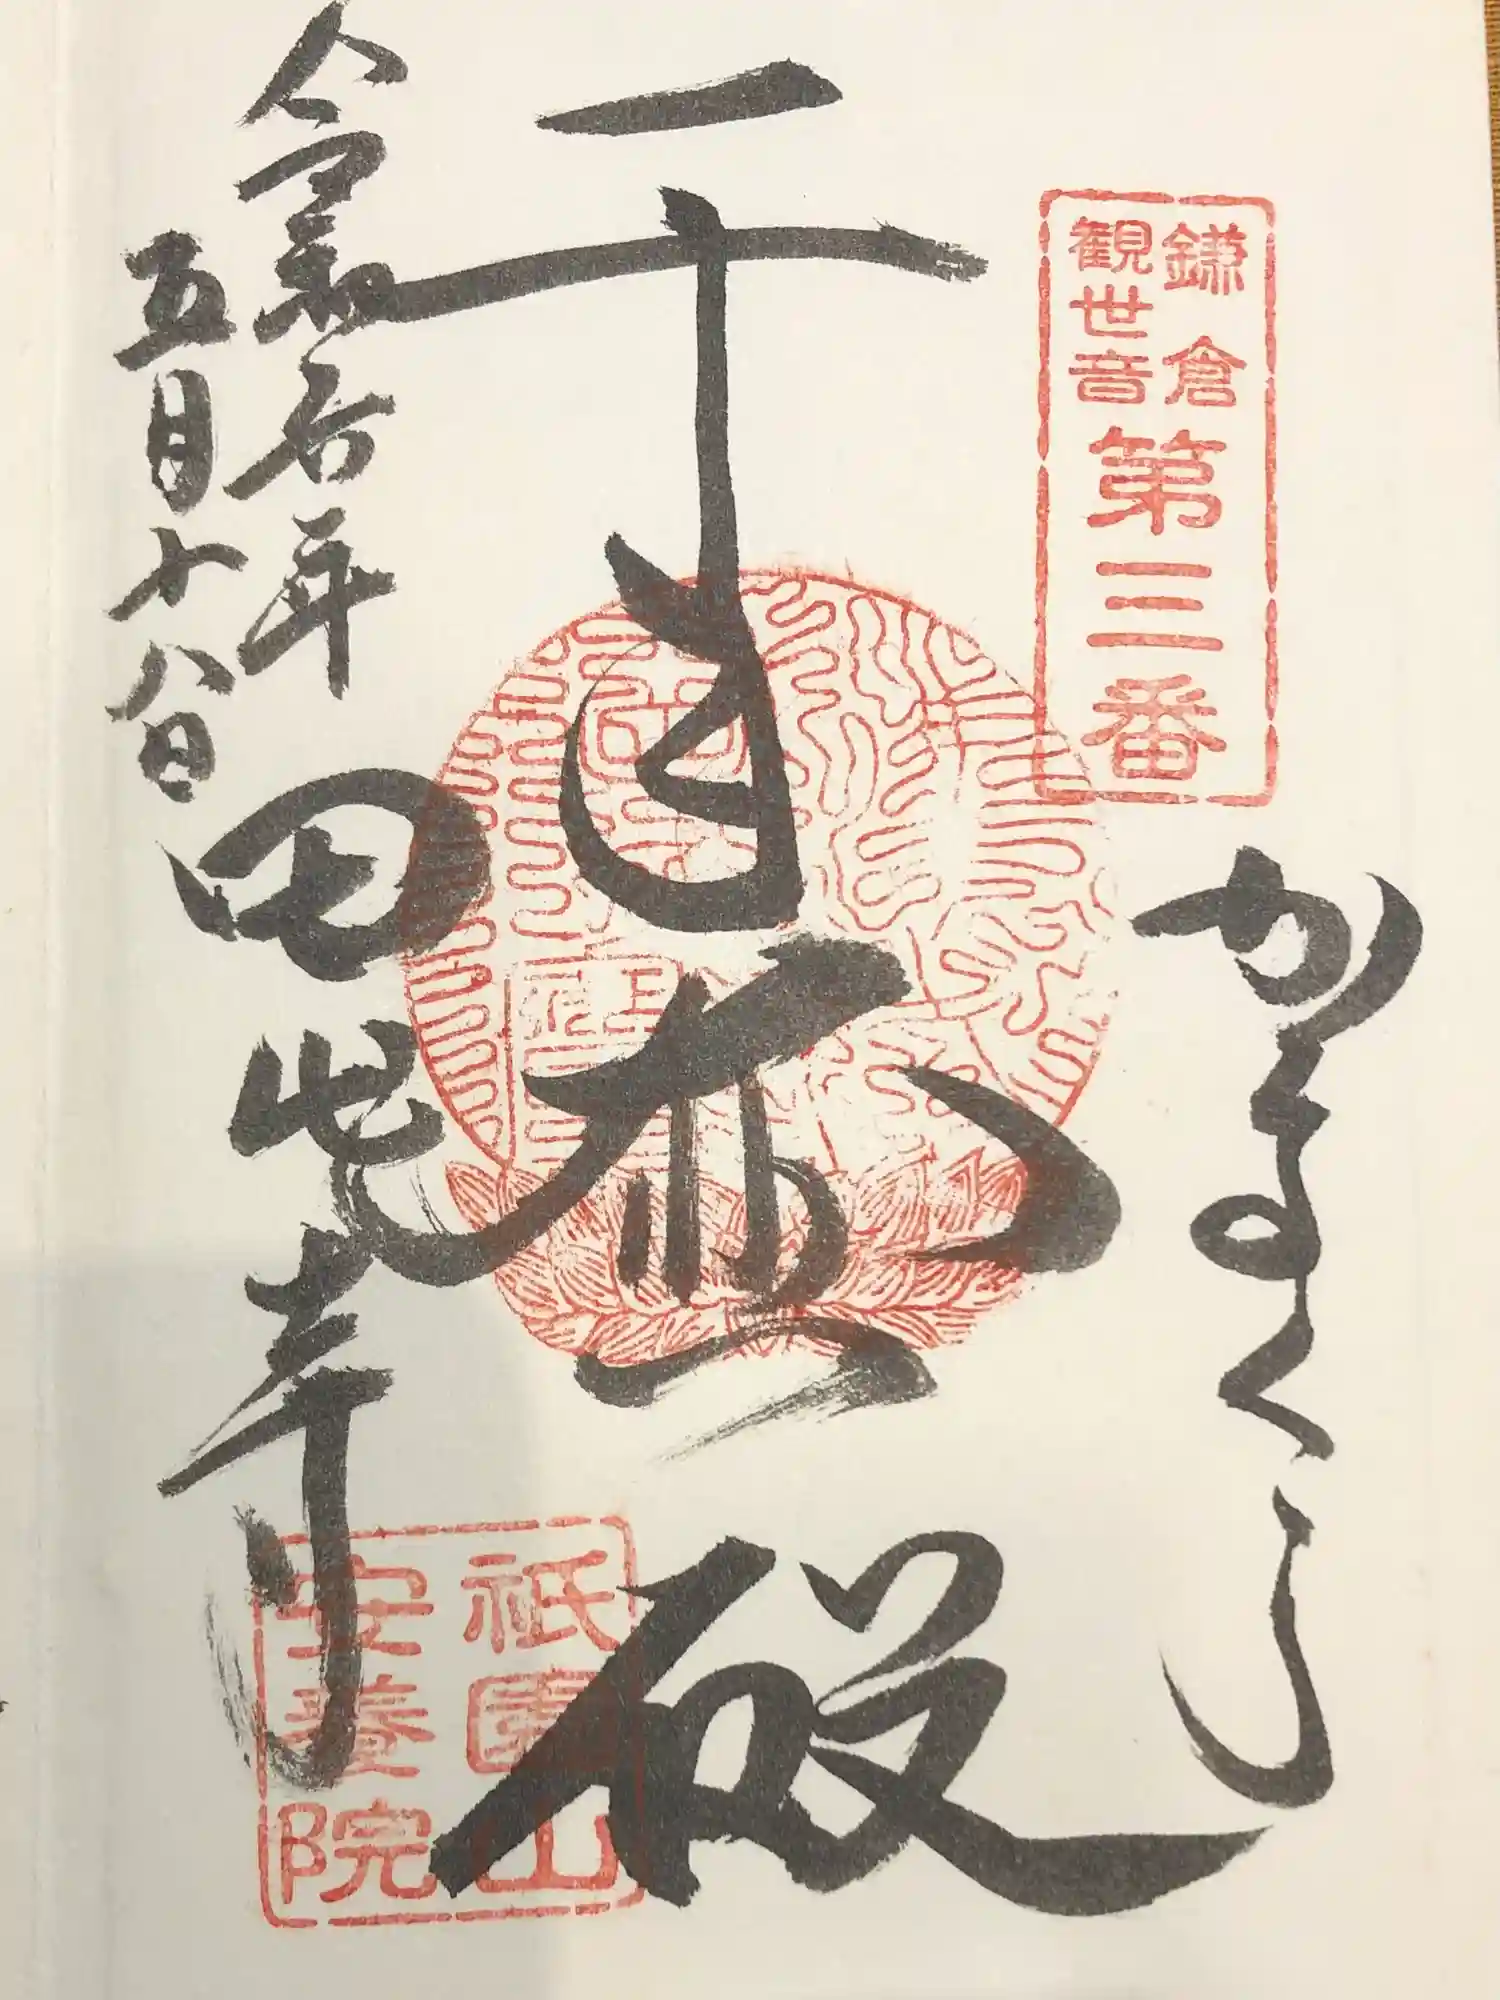 鎌倉
観世音
第三番
かまくら
千手大悲殿
田代寺
令和六年
五月十八日
祇園山
安養院